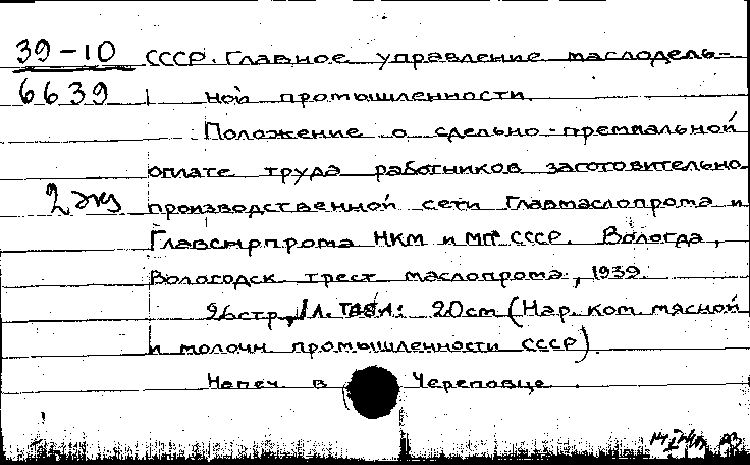 39-10 СССР. Главное управление маслодель-
6639 ной промышленности.
Положение о сдельно-премиальной
оплате труда работников заготовительно-
2 экз производственной сети Главмаслопрома и
Главсырпрома НКМ и МП СССР. Вологда,
Вологодск. трест маслопрома, 1939.
26 стр., 1 л. табл.; 20 см (Нар. ком. мясной
и молочн. промышленности СССР).
Напеч. в Череповце.